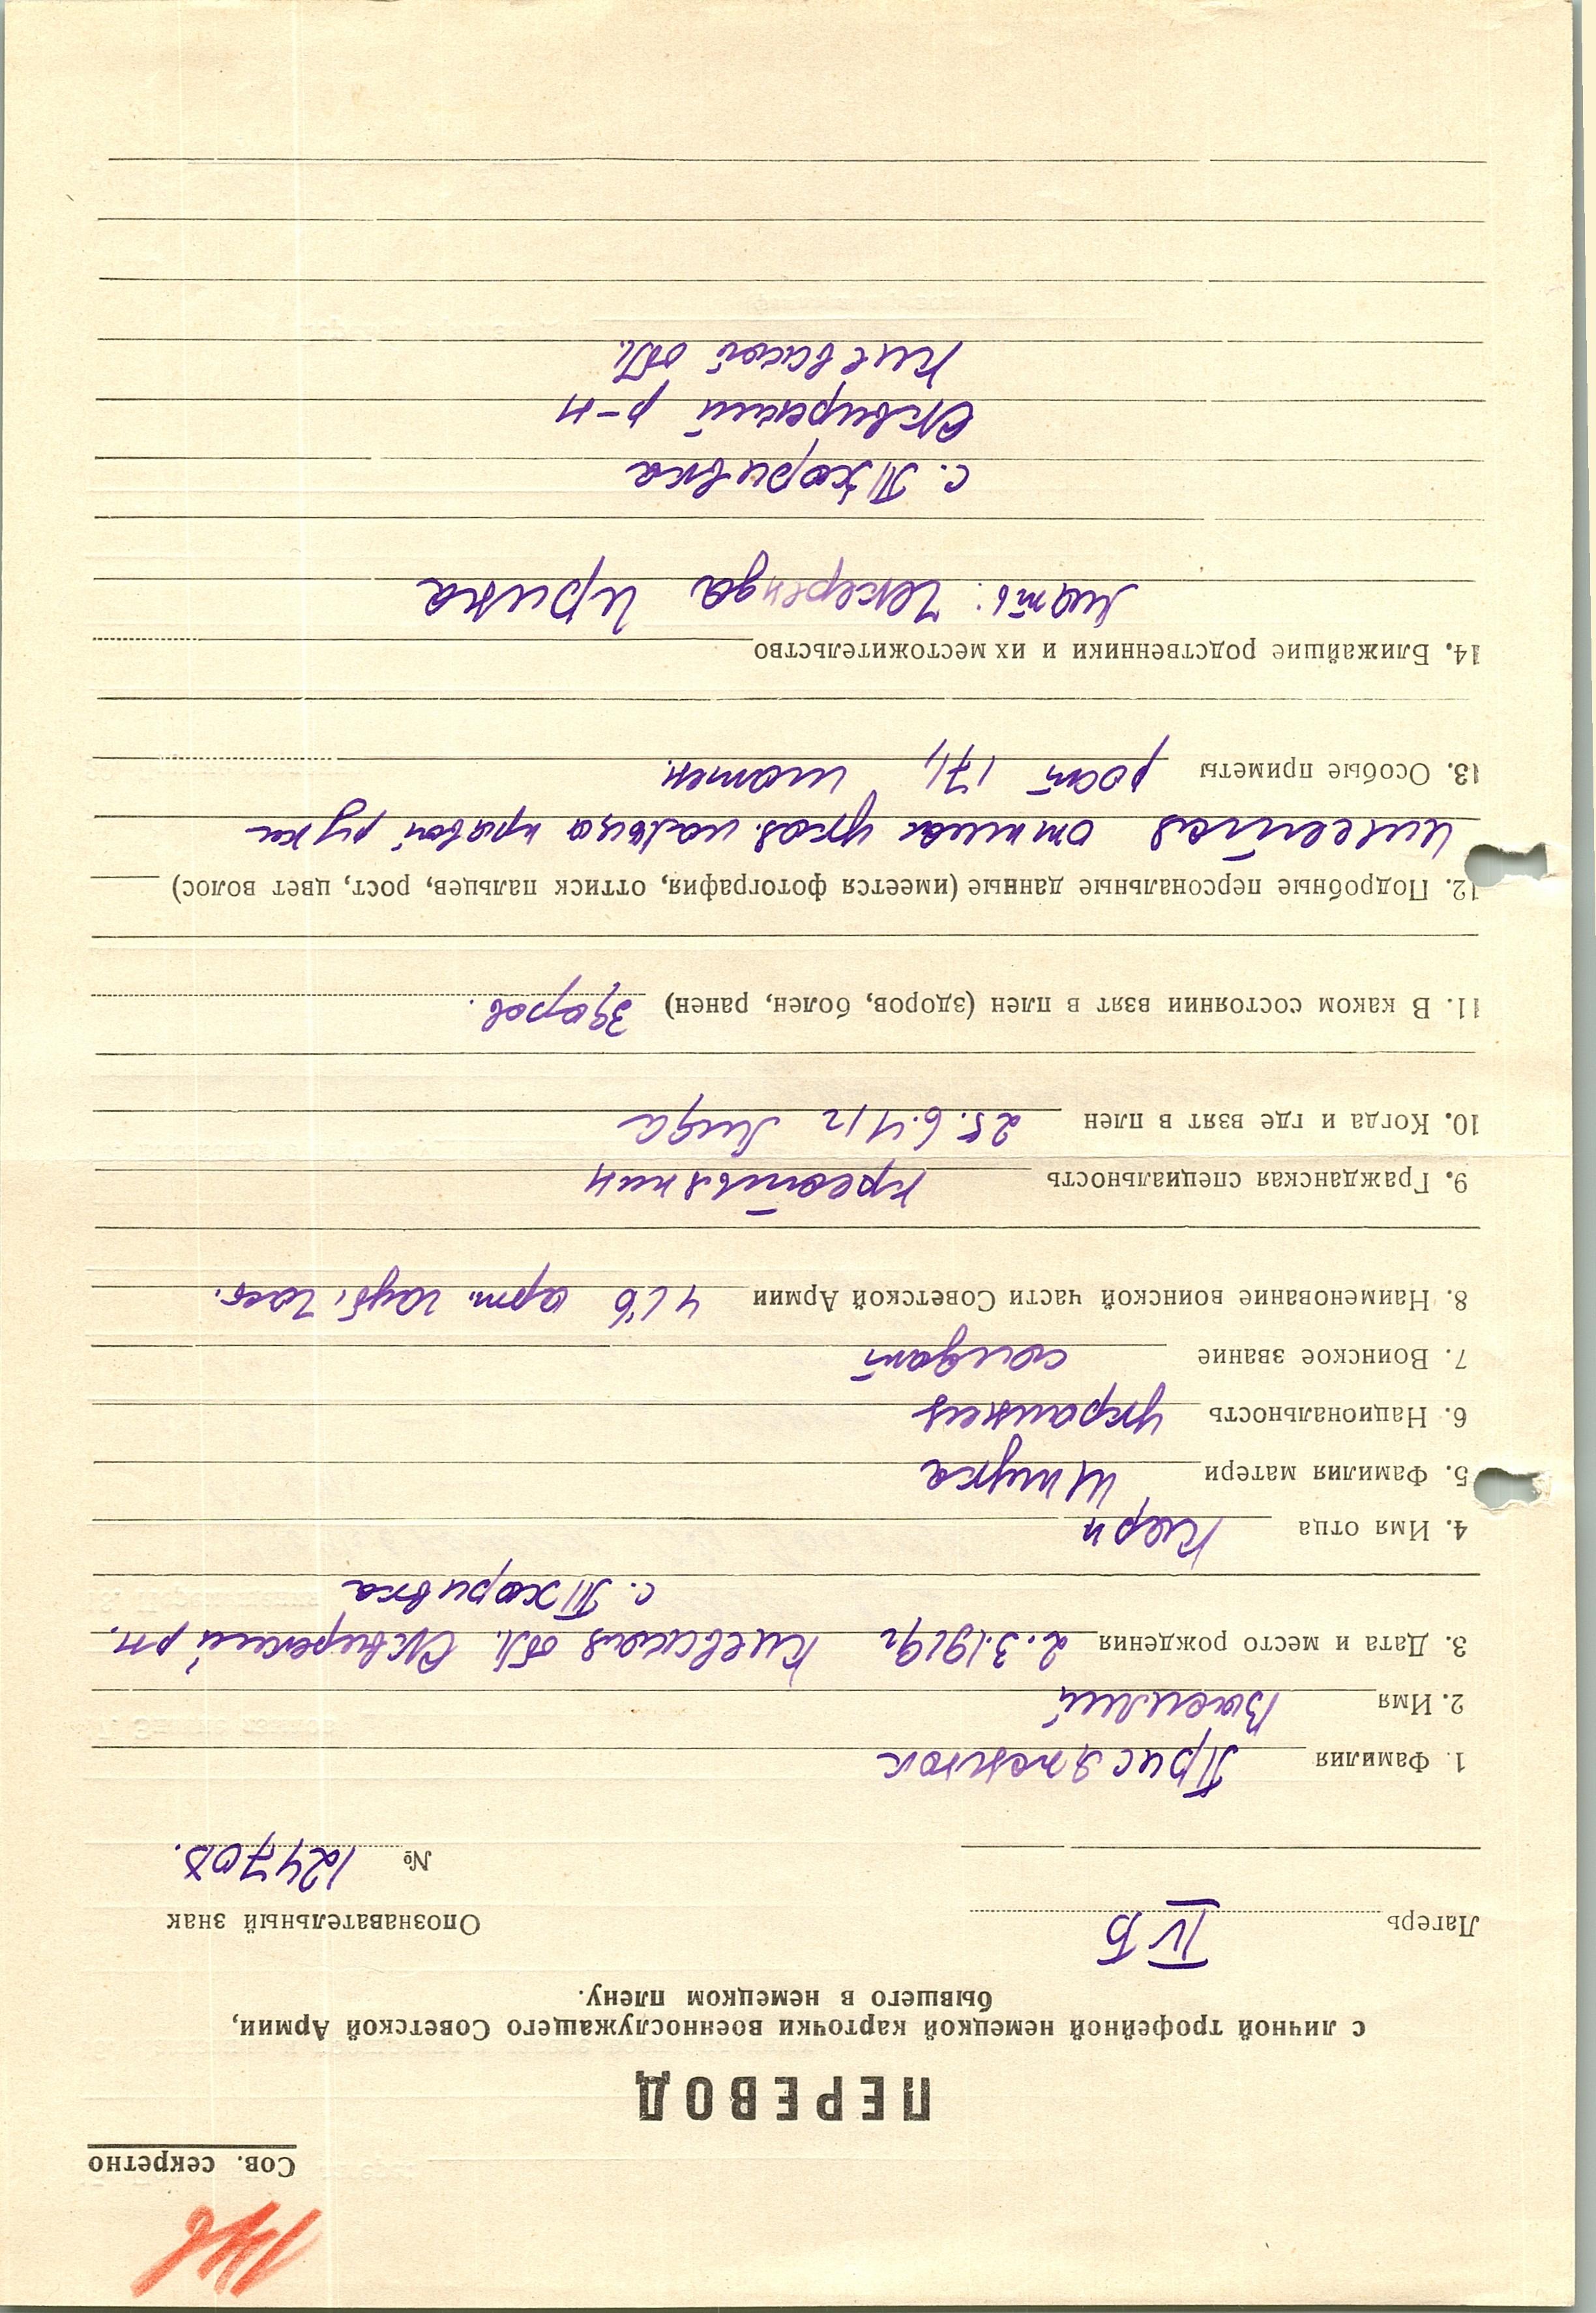 146
Сов. секретно
ПЕРЕВОД
с личной трофейной немецкой карточки военнослужащего Советской Армии,
бывшего в немецком плену.
Лагерь IV Б
Опознавательный знак
№ 124708.
1. Фамилия Присяженюк
2. Имя Василий
3. Дата и место рождения 2.3.1919г Киевская обл. Сквирский рн.
с. Тхоривка
4. Имя отца Карп
5. Фамилия матери
6. Национальность украинец
7. Воинское звание солдат
8. Наименование воинской части Советской Армии арт.
9. Гражданская специальность крестьянин
10. Когда и где взят в плен 25.6.41г Лида
11. В каком состоянии взят в плен (здоров, болен, ранен) здоров.
12. Подробные персональные данные (имеется фотография, оттиск пальцев, рост, цвет волос)
имеется оттиск указ. пальца правой руки
13. Особые приметы рост 171, шатен.
14. Ближайшие родственники и их местожительство
мать: Ирина
с. Тхоривка
Сквирский р-н
Киевской обл.